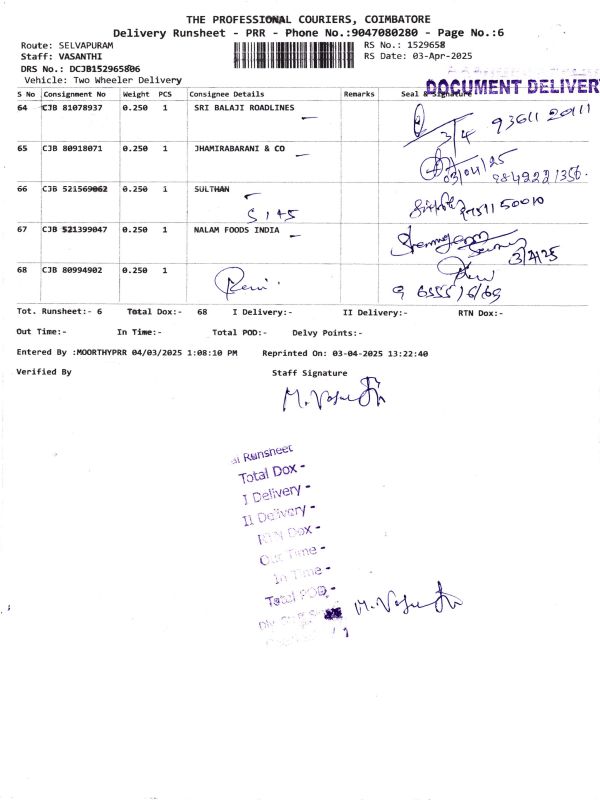 THE PROFESSIONAL COURIERS, COIMBATORE
Delivery Runsheet - PRR - Phone No.:9047080280 - Page No.:6
Route: SELVAPURAM
RS No.: 1529658
Staff: VASANTHI
RS Date: 03-Apr-2025
DRS No.: DCJB152965806
Vehicle: Two Wheeler Delivery
DOCUMENT DELIVER
S No Consignment No Weight PCS Consignee Details Remarks Seal & Signature
64 CJB 81078937 0.250 1 SRI BALAJI ROADLINES
3/4 93611 20111
65 CJB 80918071 0.250 1 JHAMIRABARANI & CO
03/04/25
9842221356.
66 CJB 521569062 0.250 1 SULTHAN
S145
67 CJB 521399047 0.250 1 NALAM FOODS INDIA
3/4/25
68 CJB 80994902 0.250 1
Tot. Runsheet:- 6 Total Dox:- 68 I Delivery:- II Delivery:- RTN Dox:-
Out Time:- In Time:- Total POD:- Delvy Points:-
Entered By :MOORTHYPRR 04/03/2025 1:08:10 PM Reprinted On: 03-04-2025 13:22:40
Verified By Staff Signature
M. Vasu
Runsheet
Total Dox -
I Delivery -
II Delivery -
RTN Dox -
Out Time -
In Time -
Total POD -
M. Vasu